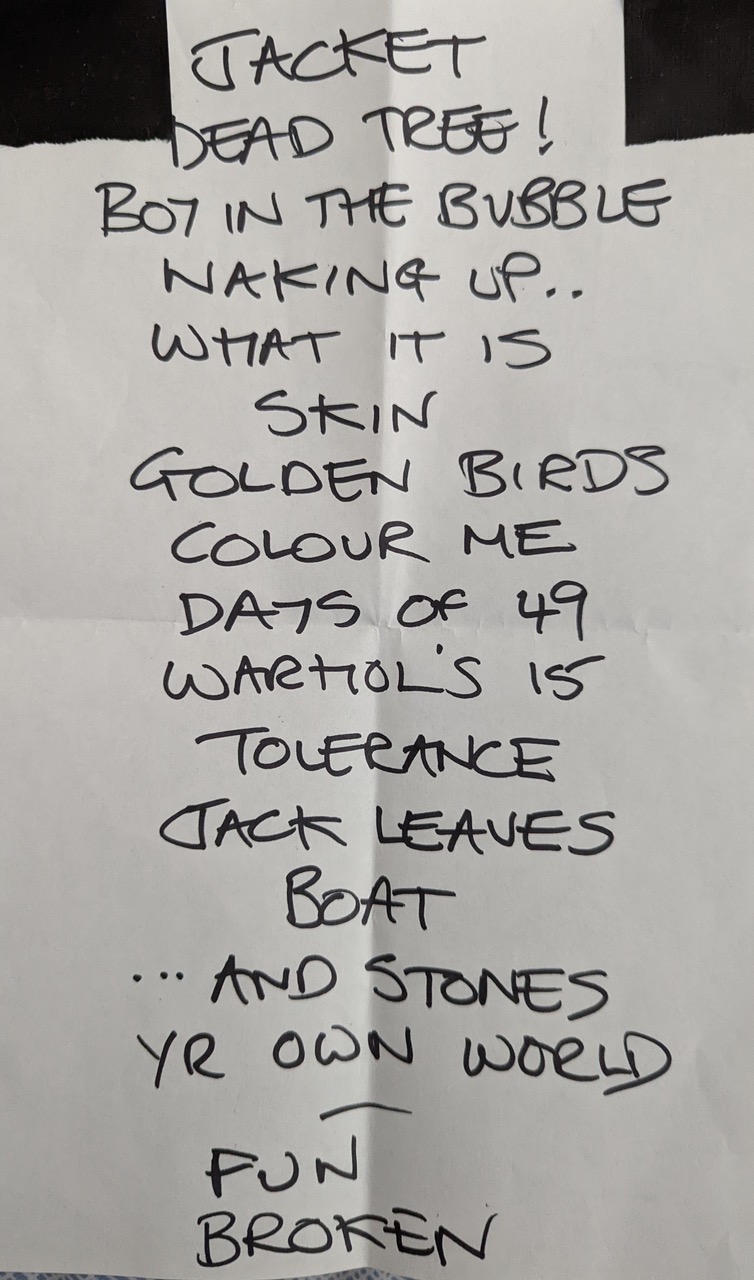 JACKET
DEAD TREE!
BOY IN THE BUBBLE
WAKING UP..
WHAT IT IS
SKIN
GOLDEN BIRDS
COLOUR ME
DAYS OF 49
WARHOL'S 15
TOLERANCE
JACK LEAVES
BOAT
... AND STONES
YR OWN WORLD
—
FUN
BROKEN